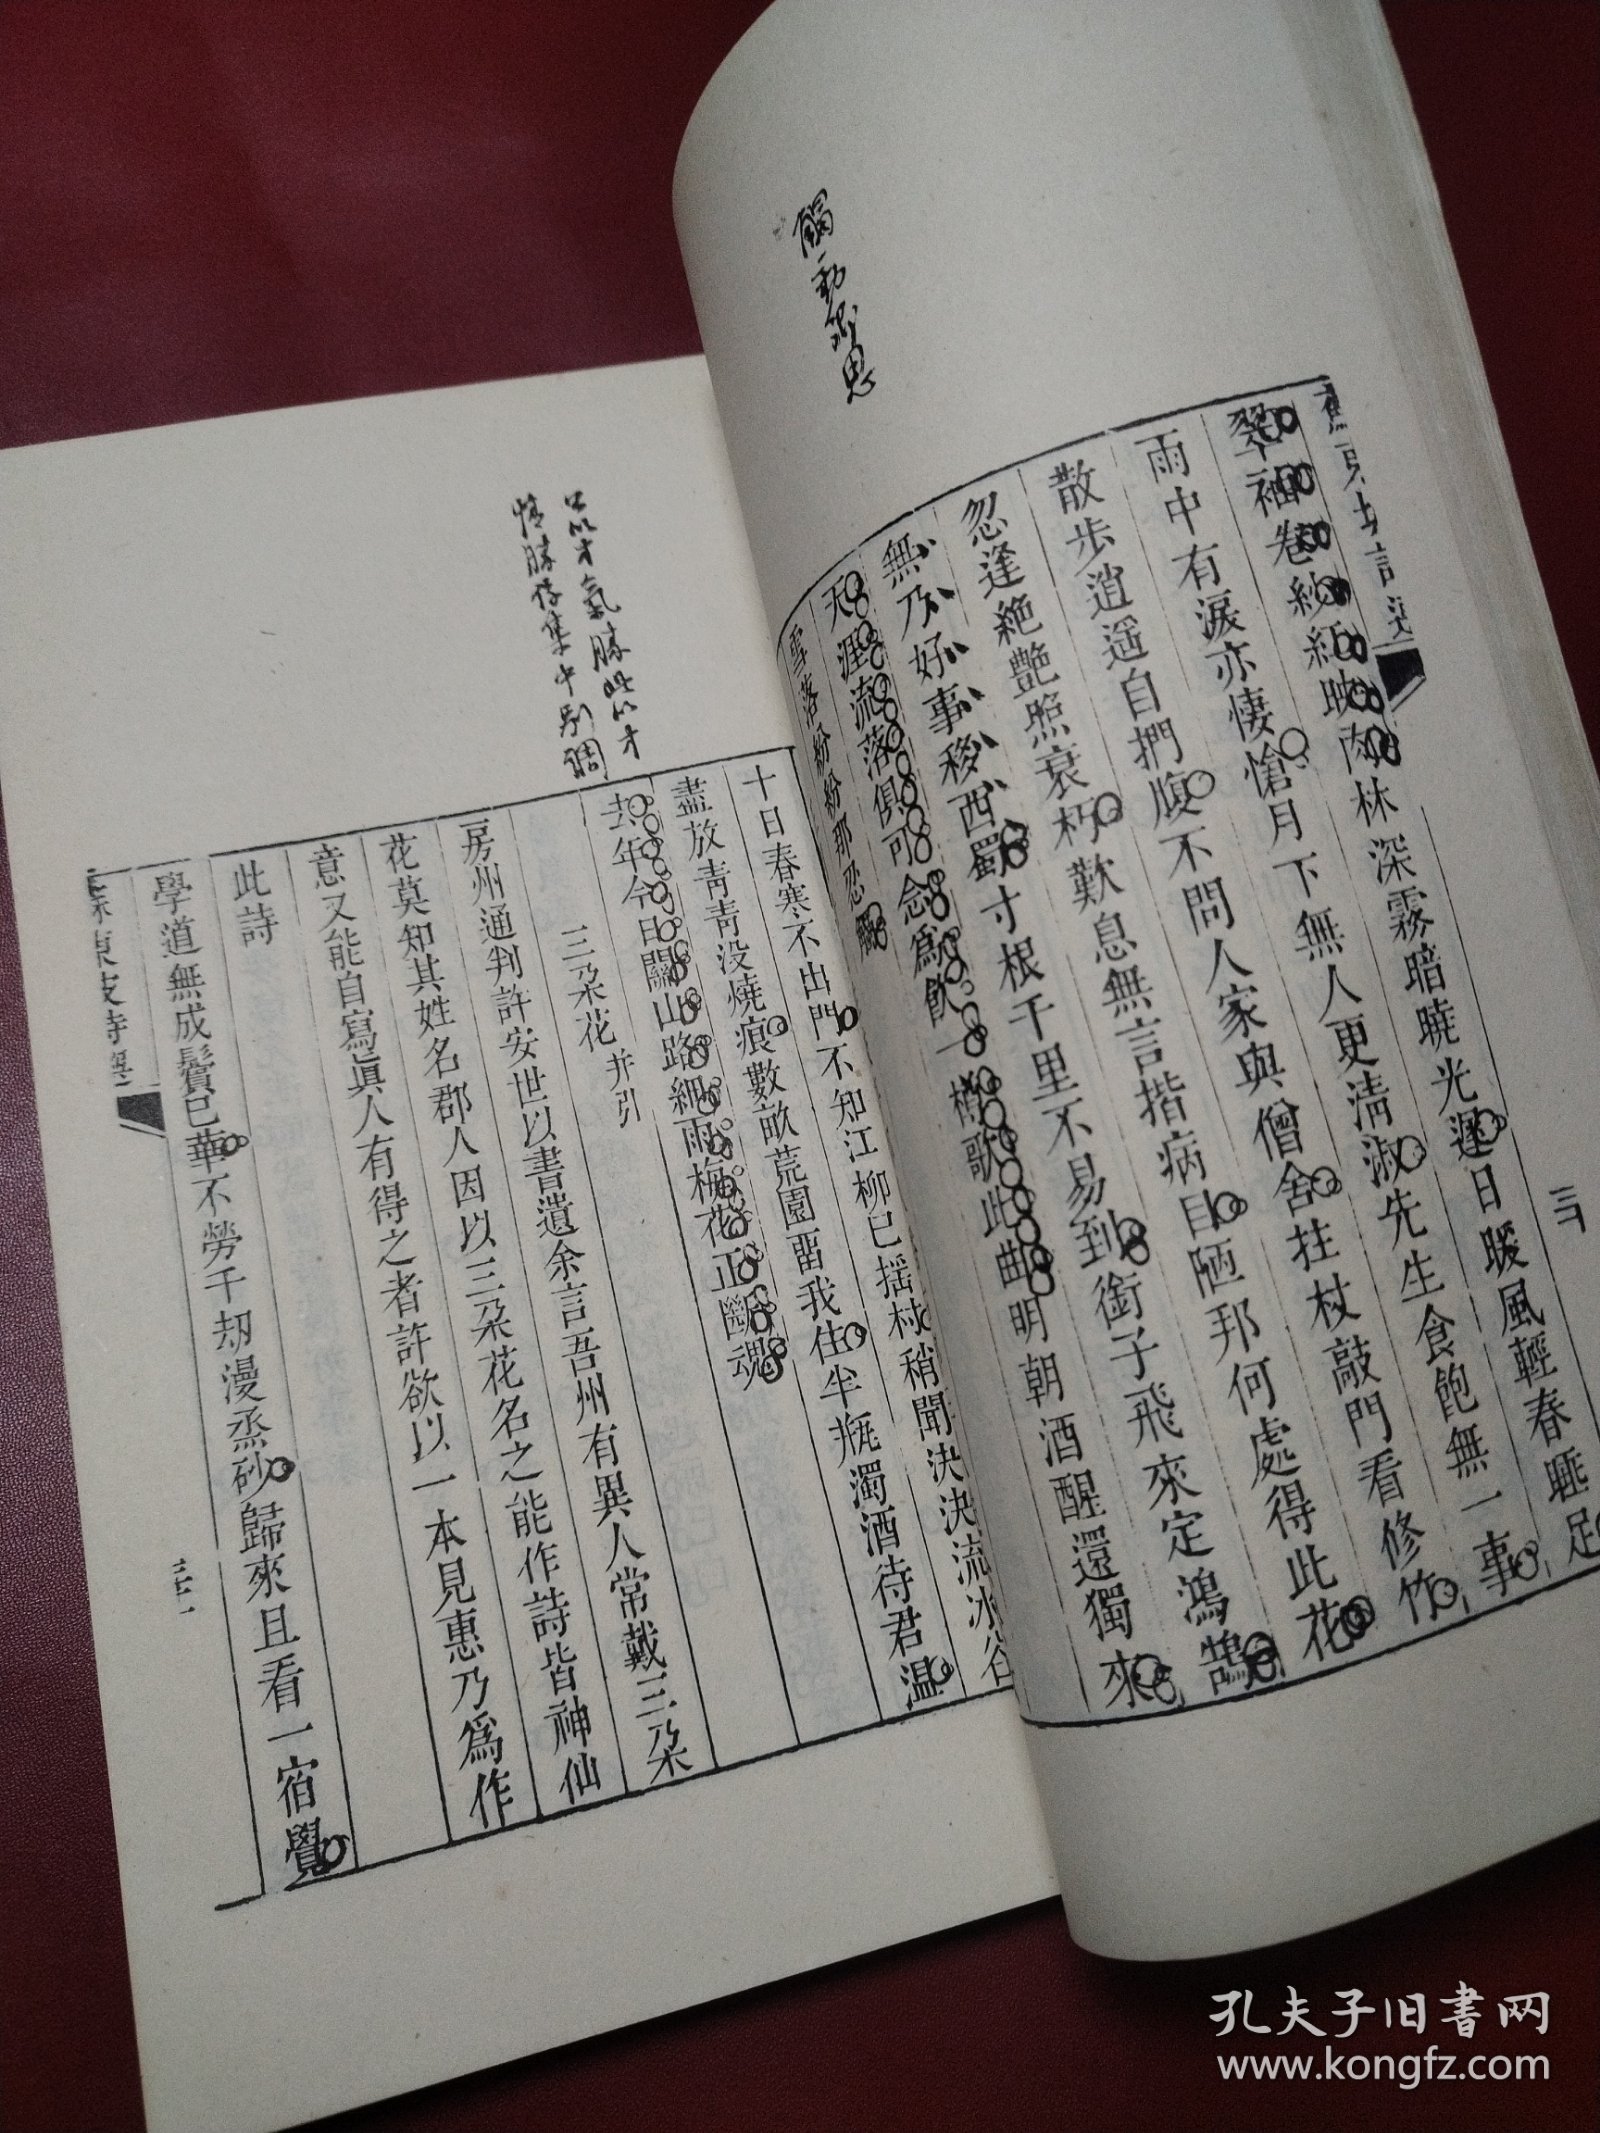 觸動鄉思
翠袖卷紗紅映肉林深霧暗曉光遲日暖風輕春睡足
雨中有淚亦悽愴月下無人更淸淑先生食飽無一事
散步逍遥自捫腹不問人家與僧舍拄杖敲門看修竹
忽逢絶艷照衰朽歎息無言揩病目陋邦何處得此花
無乃好事移西蜀寸根千里不易到銜子飛來定鴻鵠
天涯流落俱可念爲飮一樽歌此曲明朝酒醒還獨來
雪落紛紛那忍觸
公以才氣勝此以才
情勝集中別調
十日春寒不出門不知江柳已揺村稍聞決決流冰谷
盡放靑靑没燒痕數畝荒園畱我住半瓶濁酒待君温
去年今日關山路細雨梅花正斷魂
三朶花 并引
房州通判許安世以書遺余言吾州有異人常戴三朶
花莫知其姓名郡人因以三朶花名之能作詩皆神仙
意又能自寫眞人有得之者許欲以一本見惠乃爲作
此詩
學道無成鬢已華不勞千刼漫烝砂歸來且看一宿覺
蘇東坡詩選
孔夫子旧书网
www.kongfz.com